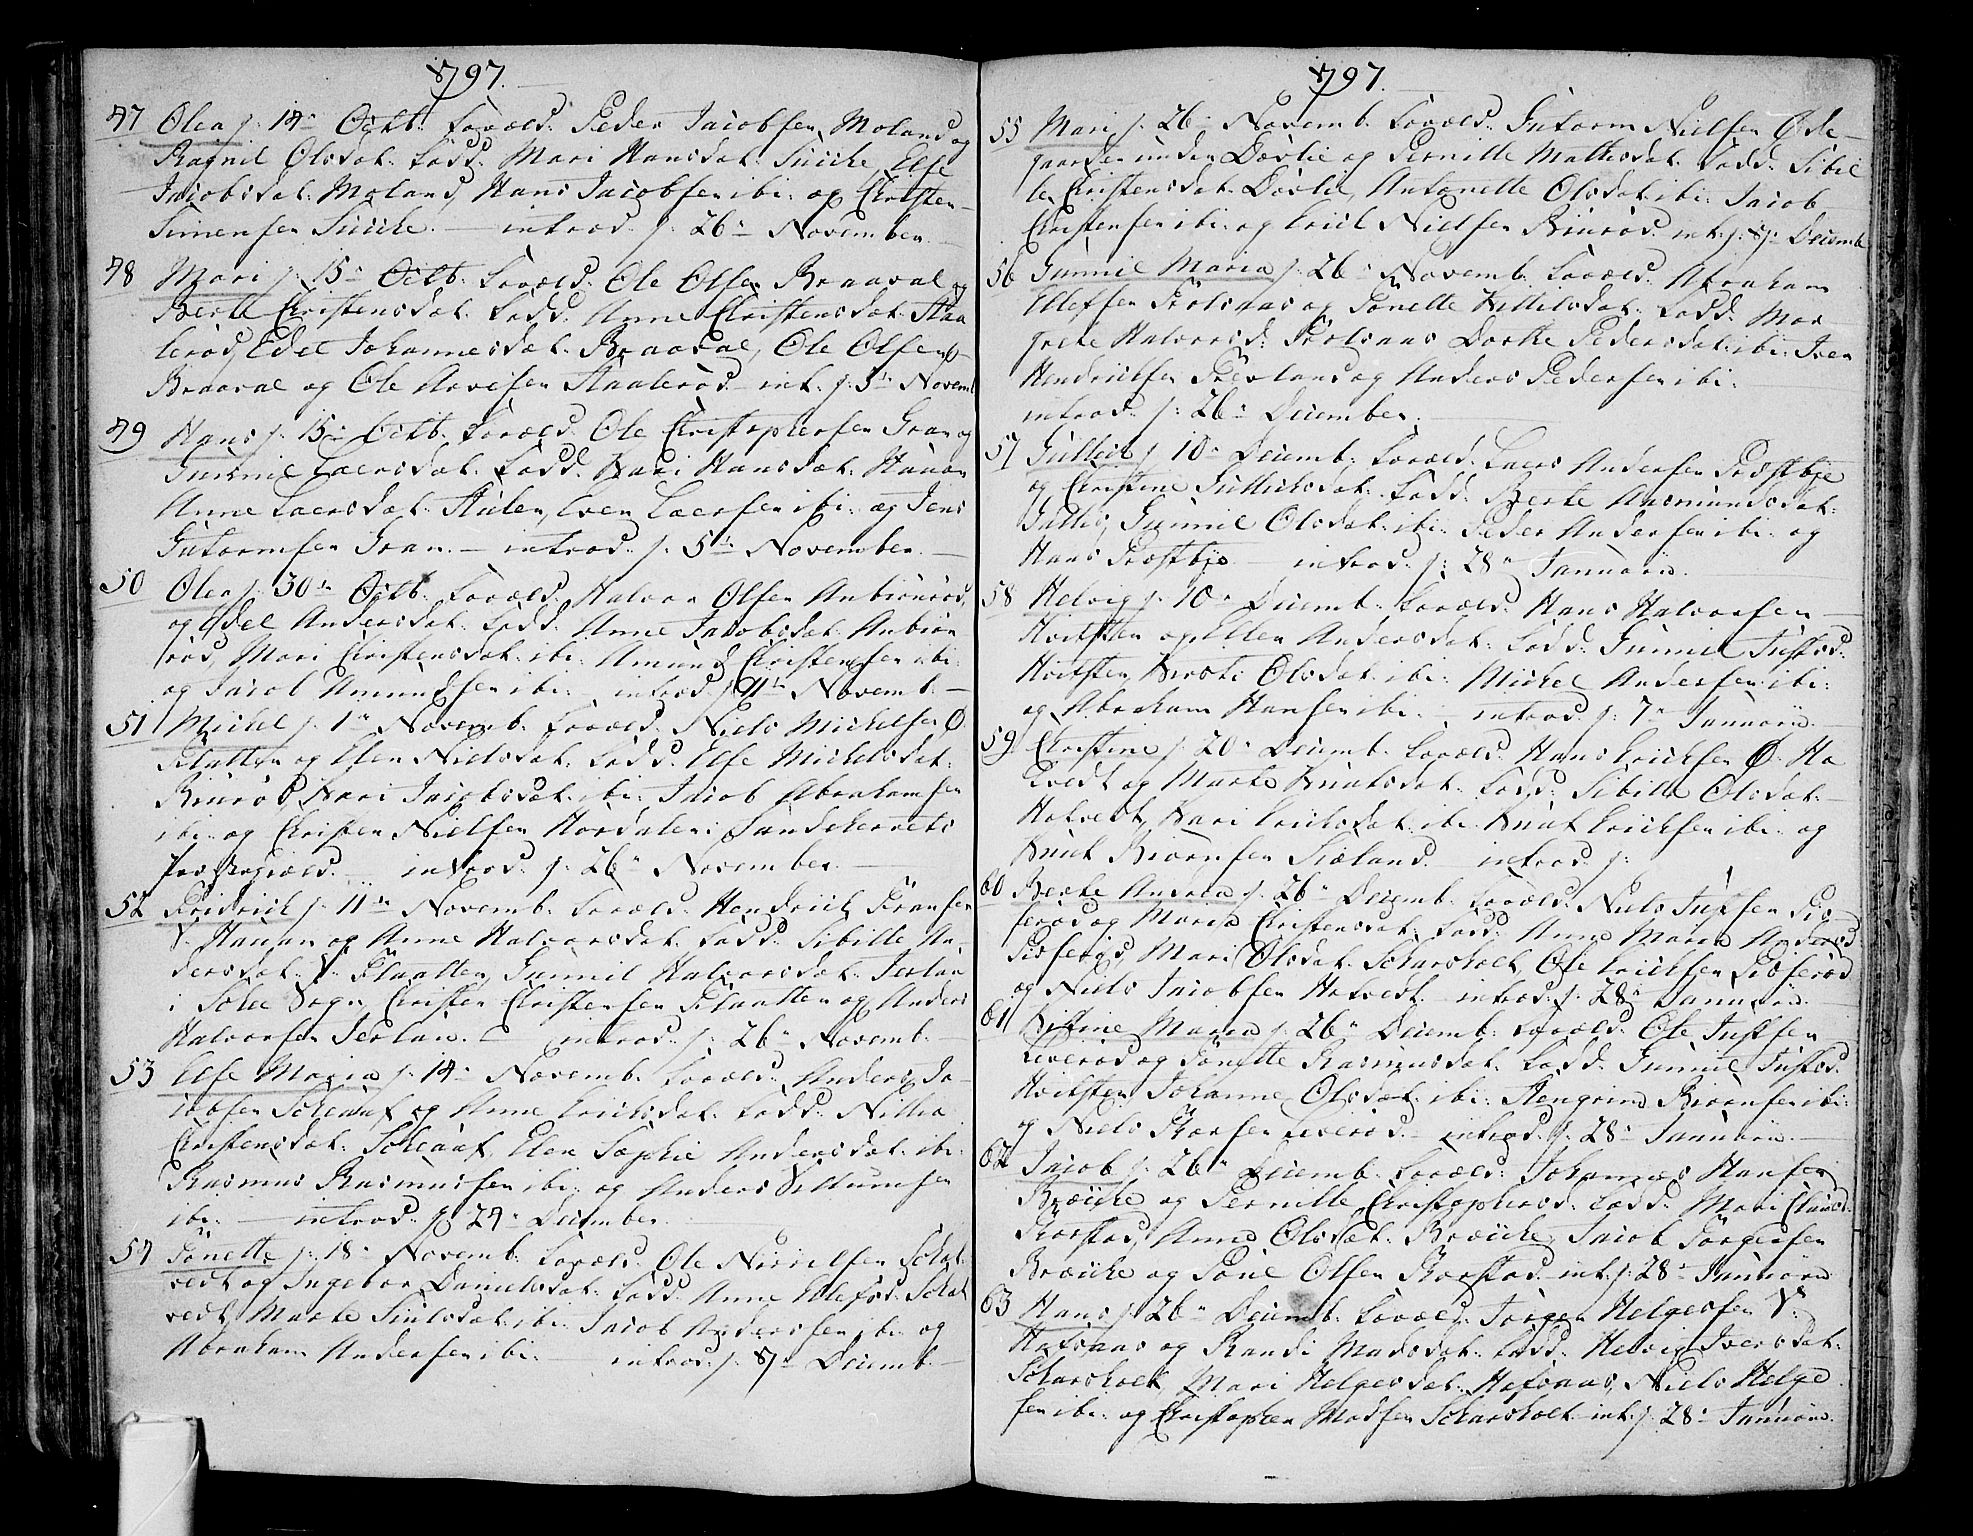 1797.
47 Olea f: 14de Octb: Foræld: Peder Jacobsen Moland og
Ragnil Olsdat: Fadd: Mari Hansdat: Else
Jacobsdat: Moland, Hans Jacobsen ibi: og Christen
Simensen introd: f: 26de November.
48 Mari f: 15de Octb: Foræld: Ole Olsen Braaval og
Berte Christensdat: Fadd: Anne Christensdat: Haa
lerød, Edel Johannesdat: Braaval, Ole Olsen
Braaval og Ole Haalerød int: f: 5te Novemb
49 Hans f: 15de Octb: Foræld: Ole Christophersen Gran og
Gunnil Laersdat: Fadd: Kari Hansdat: Hanan
Anne Laersdat: Even Laersen ibi: og Jens
Gutormsen Gran. introd: f: 5te November.
50 Olea f: 30te Octb: Foræld: Halvor Olsen Anbiønrød
og Edel Andersdat: Fadd: Anne Jacobsdat: Anbiøn
rød, Mari Christensdat: ibi: Amund Christensen ibi:
og Jacob Amundsen ibi: introd: f: 11te Novemb:
51 Michel f: 1te Novemb: Foræld: Niels Michelsen Ø
Flatten og Elen Nielsdat: Fadd: Else Michelsdat:
Biurød, Kari Jacobsdat: ibi: Jacob Abrahamsen
ibi: og Christen Nielsen Hordalen i Sandeherrets
Præstegield. introd: f: 26de November.
52 Fridrich f: 11te Novemb: Foræld: Hendrich Fransen
V: Hanan og Anne Halvorsdat: Fadd: Sibille An
dersdat: V: Flaatten, Gunnil Halvorsdat: Jerlan
i Sogn, Christen Christensen Flaatten og Anders
Halvorsen Jerlan. introd: f: 26de Novemb:
53 Else Maria f: 14de Novemb: Foræld: Anders Ja
cobsen og Anne Ericksdat: Fadd:
Christensdat: Elen Sophie Andersdat: ibi:
Rasmus Rasmussen ibi: og Anders
ibi: introd: f: 24de December.
54 Tonette f: 18de Novemb: Foræld: Ole
vedt og Ingebor Danielsdat: Fadd: Anne Ellefsd:
vedt, Marte ibi: Jacob Andersen ibi: og
Abraham Andersen ibi: introd: f: 8de Decemb:
1797.
55 Mari f: 26de Novemb: Foræld: Gutorm Nielsen Øde-
gaarden under Døvlie og Pernille Mathisdat: Fadd: Sibil
le Christensdat: Døvlie, Antonette Olsdat: ibi: Jacob
Christensen ibi: og Erick Nielsen Biurød int: f: 8de Decemb
56 Gunnil Maria f: 26de Novemb: Foræld: Abraham
Ellefsen og Tonette Kittilsdat: Fadd: Mar
grete Halvorsd: Dorte Pedersdat: ibi: Iver
Hendricksen og Anders Pedersen ibi:
introd: f: 26de December.
57 Gullich f: 10de Decemb: Foræld: Laers Andersen Præstbye
og Christine Gullichsdat: Fadd: Berte Aasmundsdat:
Gunnil Olsdat: ibi: Peder Andersen ibi: og
Hans Præstbye introd: f: 28de Januarii.
58 Helvig f: 10de Decemb: Foræld: Hans Halvorsen
Hvitsten og Ellen Andersdat: Fadd: Gunnil Justsd:
Hvitsten, Kirsti Olsdat: ibi: Michel Andersen ibi:
og Abraham Hansen ibi: introd: f: 7de Januarii.
59 Christine f: 20de Decemb: Foræld: Hans Ericksen Ø: Ha
tvedt og Marte Knutsdat: Fadd: Sibille Olsdat:
Hatvedt, Kari Ericksdat: ibi: Knut Ericksen ibi: og
Knut Biørnsen Siøland introd: f:
60 Berte Andrea f: 26de Decemb: Foræld: Niels Justsen
og Maria Christensdat: Fadd: Anne Maria Andersd:
Mari Olsdat: Scharsholt, Ole Ericksen
og Niels Jacobsen Hatvedt introd: f: 28de Januarii.
61 Kistine Maria f: 26de Decemb: Foræld: Ole Justsen
Liverød og Tonette Rasmusdat: Fadd: Gunnil Justsd:
Hvitsten, Johanne Olsdat: ibi: Stengrim Biørnsen ibi:
og Niels Liverød introd: f: 28de Januarii.
62 Jacob f: 26de Decemb: Foræld: Johannes Hansen
Bræcke og Pernille Christophersd: Fadd: Mari Clausd:
Rørstad, Anne Olsdat: Bræcke, Jacob Jørgensen
Bræcke og Tone Olsen Rørstad int: f: 28de Januarii
63 Hans f: 26de Decemb: Foræld: Jørgen Helgesen V:
Hafsaas og Randi Madsdat: Fadd: Helvig Iversdat:
Scharsholt, Mari Helgesdat: Hafsaas, Niels Helge
sen ibi: og Christopher Madsen Scharsholt int: f: 28de Januarii.